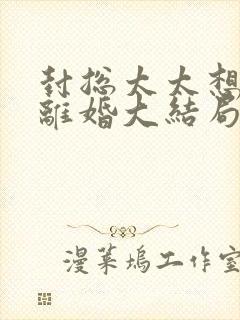 封总太太想
離婚大結局
漫菓塢工作室